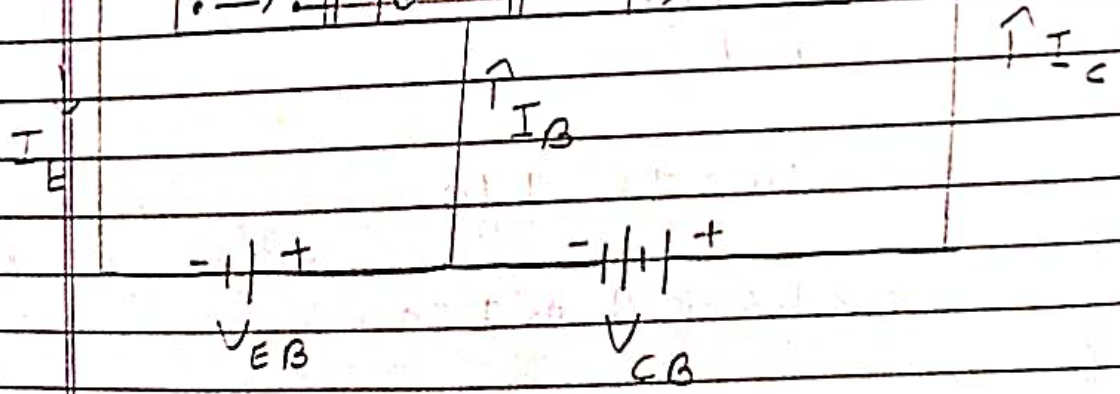 I_C
I_B
I_E
- + - +
V_EB V_CB